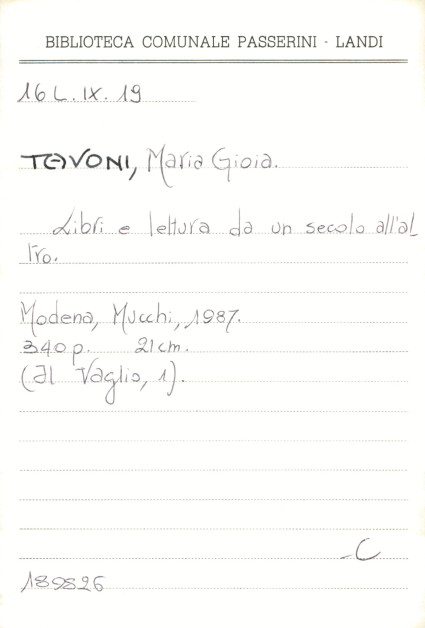 BIBLIOTECA COMUNALE PASSERINI - LANDI
16 L. IX. 19
TAVONI, Maria Gioia.
Libri e lettura da un secolo all'al_
tro.
Modena, Mucchi, 1987.
340 p. 21 cm.
(Al Vaglio, 1).
-C
189826